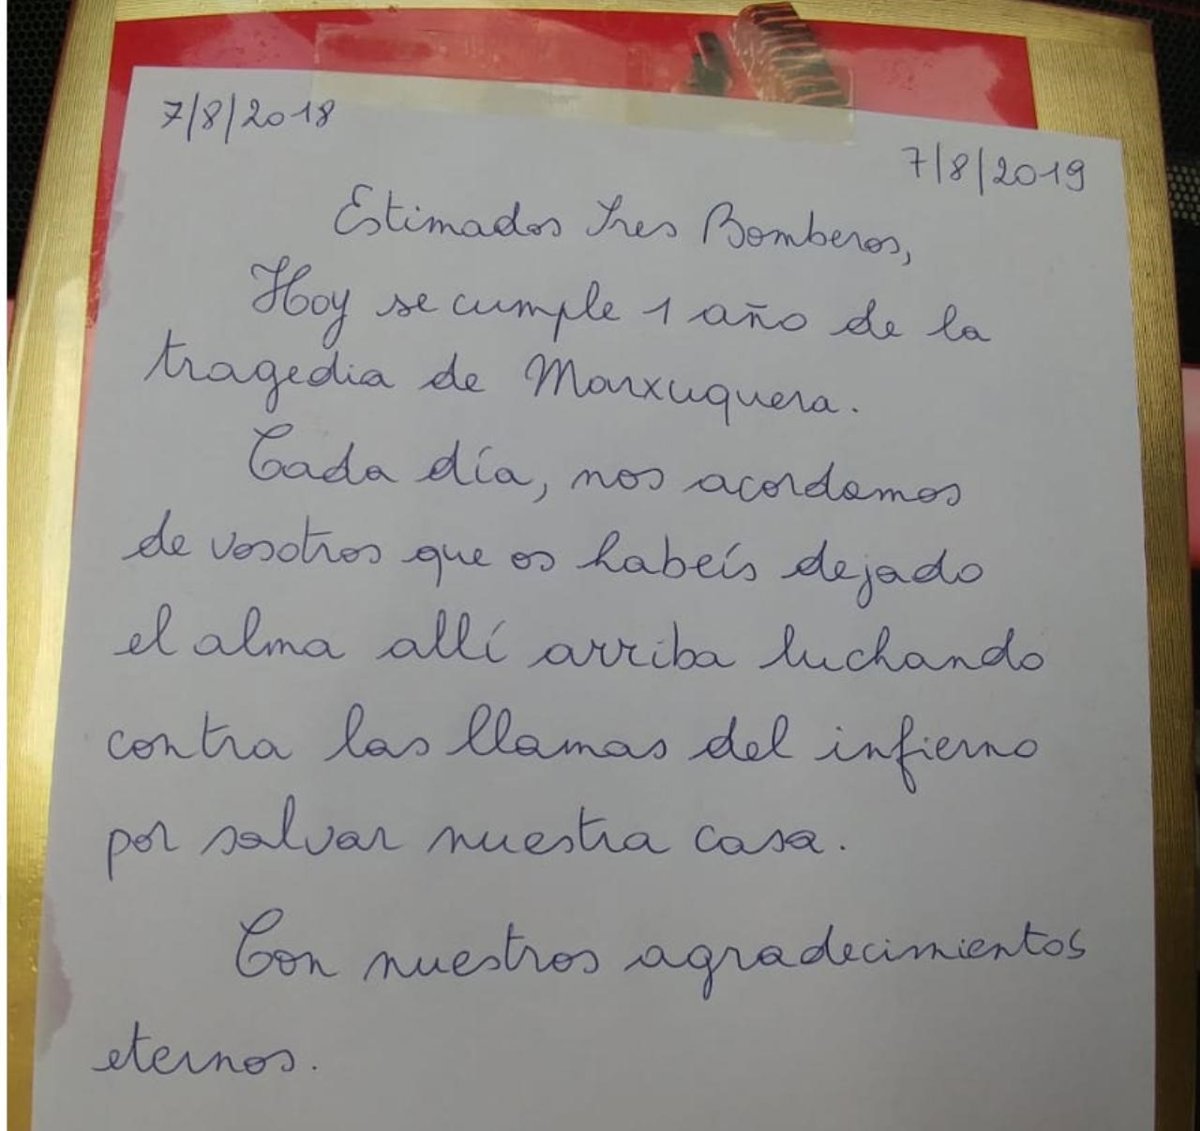 7/8/2018
7/8/2019
Estimados Tres Bomberos,
Hoy se cumple 1 año de la
tragedia de Marxuquera.
Cada día, nos acordamos
de vosotros que os habeís dejado
el alma allí arriba luchando
contra las llamas del infierno
por salvar nuestra casa.
Con nuestros agradecimientos
eternos.